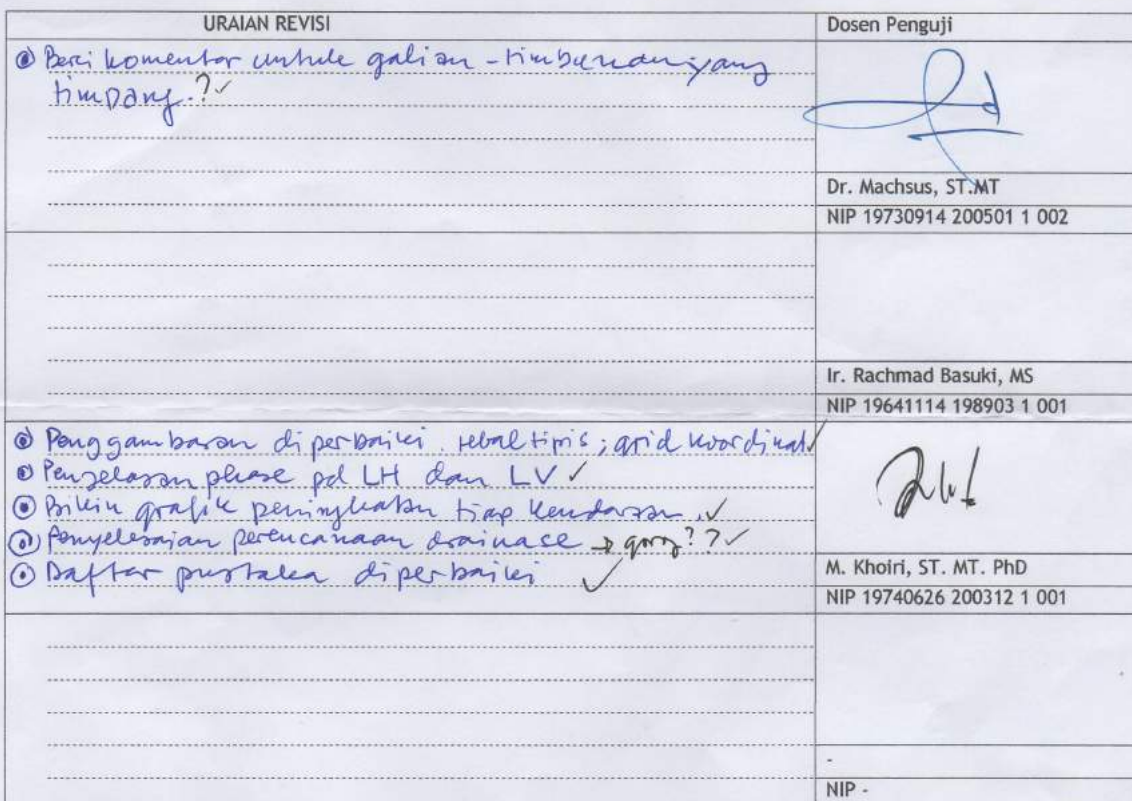 URAIAN REVISI
Dosen Penguji
Beri komentar untuk galian - timbunan yang
timpang.?✓
Dr. Machsus, ST.MT
NIP 19730914 200501 1 002
Ir. Rachmad Basuki, MS
NIP 19641114 198903 1 001
Penggambaran diperbaiki. tebal tipis; grid koordinat ✓
Penjelasan phase pd LH dan LV ✓
Bikin grafik peningkatan tiap kendaraan. ✓
Penyelesaian perencanaan drainase → ?? ✓
Daftar pustaka diperbaiki ✓
M. Khoiri, ST. MT. PhD
NIP 19740626 200312 1 001
-
NIP -